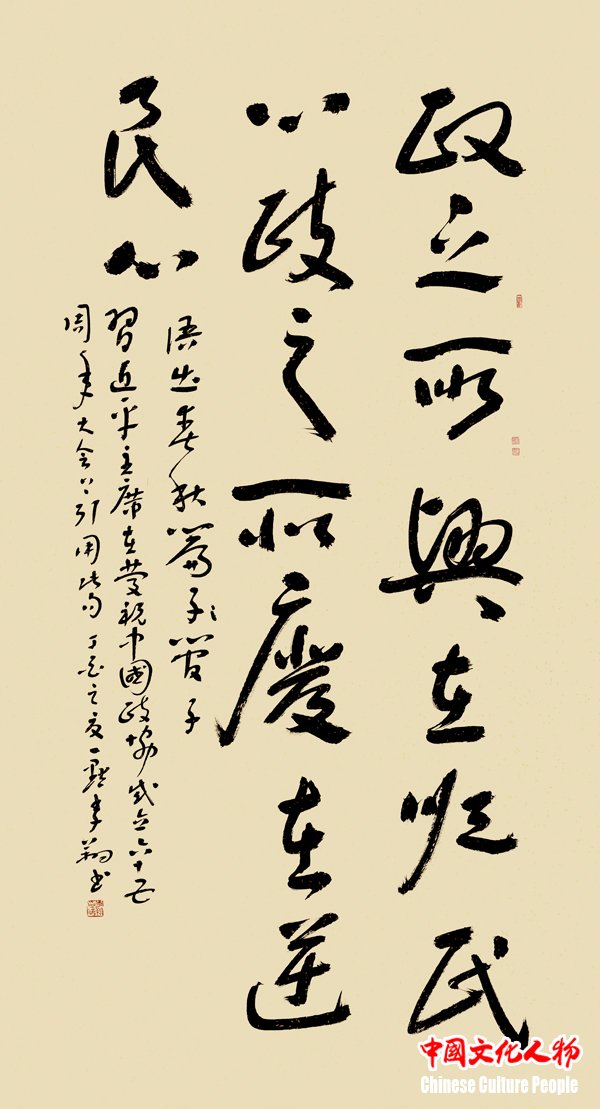 政之所興在順民
心政之所廢在逆
民心
語出春秋 管子
習近平主席在慶祝中國政協成立六十五
周年大會上引用此句 丁酉之夏 李翔書
中國文化人物
Chinese Culture People